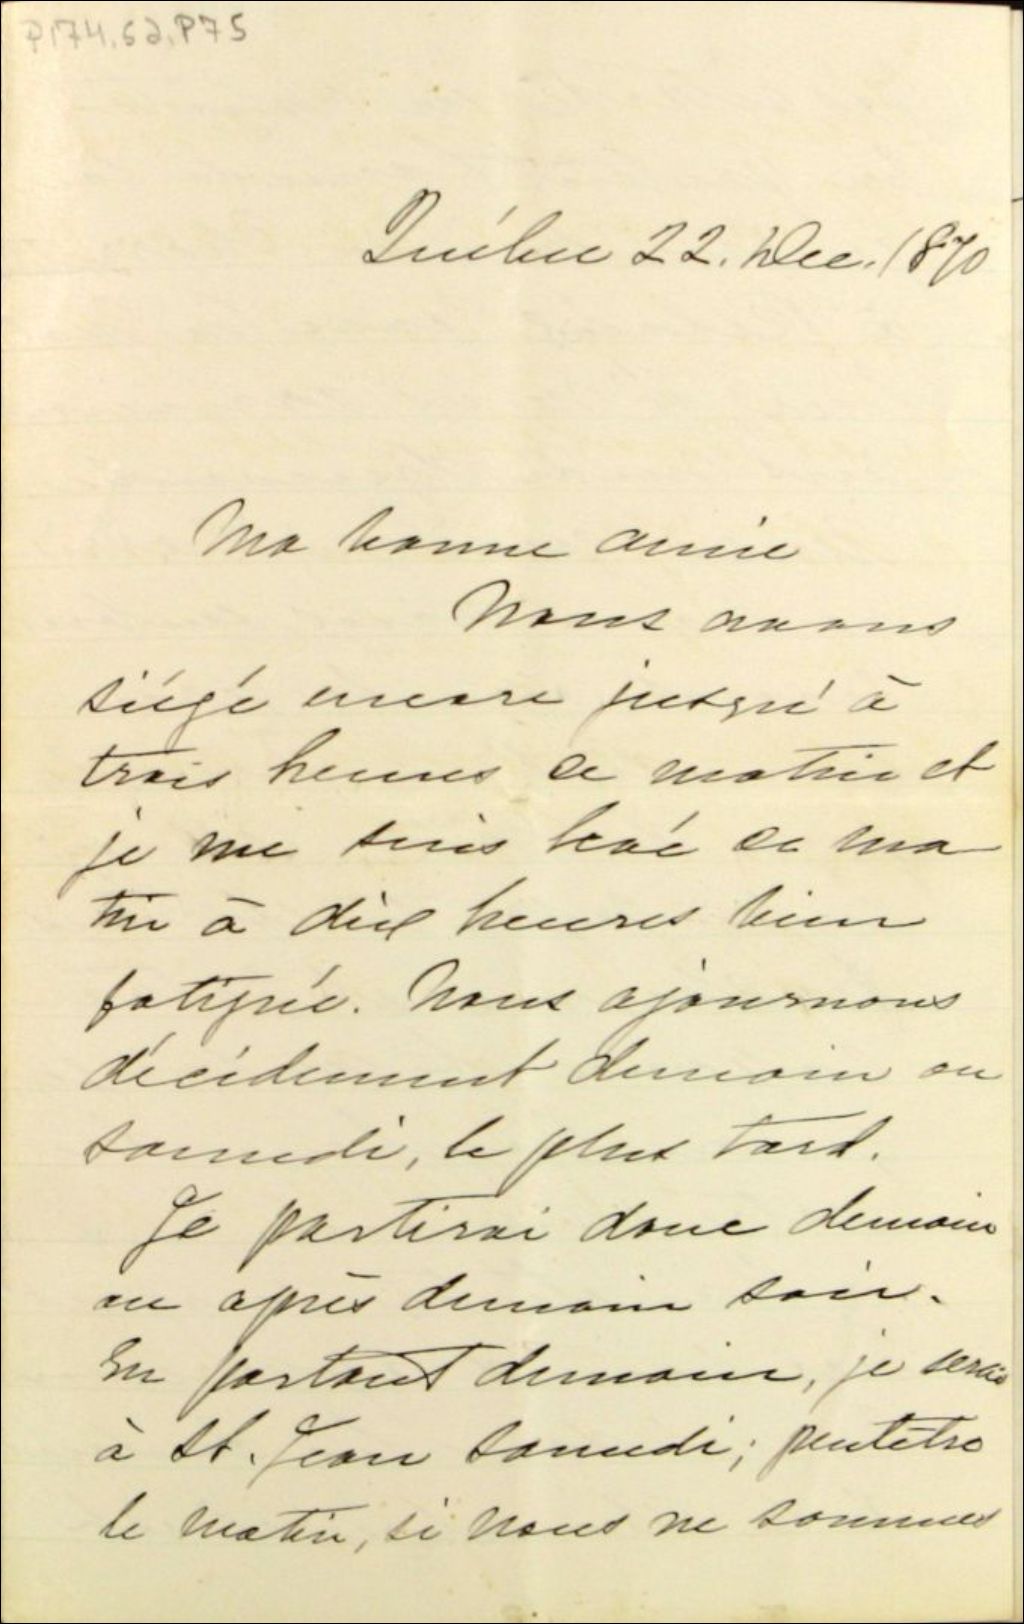 P174,S2,P75
Québec 22. Dec. 1870
Ma bonne amie
Nous avons
siégé encore jusqu'à
trois heures ce matin et
je me suis levé ce ma
tin à dix heures bien
fatigué. Nous ajournons
décidement demain ou
samedi, le plus tard.
Je partirai donc demain
ou après demain soir.
En partant demain, je serai
à St. Jean samedi; peutêtre
le matin, si nous ne sommes